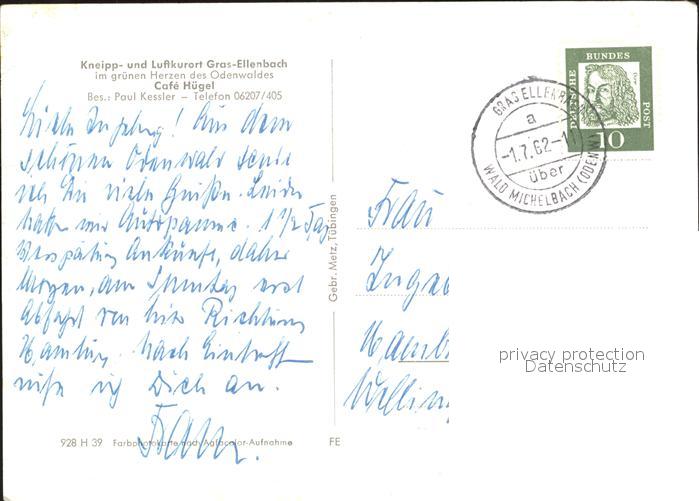 Kneipp- und Luftkurort Gras-Ellenbach
im grünen Herzen des Odenwaldes
Café Hügel
Bes.: Paul Kessler – Telefon 06207/405
Liebe Ingeborg! Aus dem
schönen Odenwald sende
ich Dir viele Grüße. Leider
hatten wir Autopanne. 1 1/2 Tag
Verspätung Ankunft, daher
Morgen, am Sonntag erst
Abfahrt von hier Richtung
Hamburg. Nach Eintreff
rufe ich Dich an.
928 H 39 Farbphotokarte nach Agfacolor-Aufnahme FE
Gebr. Metz, Tübingen
DEUTSCHE BUNDES POST
10
GRAS ELLENBACH
a
-1.7.62-1
über
WALD MICHELBACH (ODENW)
Frau
Inge
Hamb
privacy protection
Datenschutz